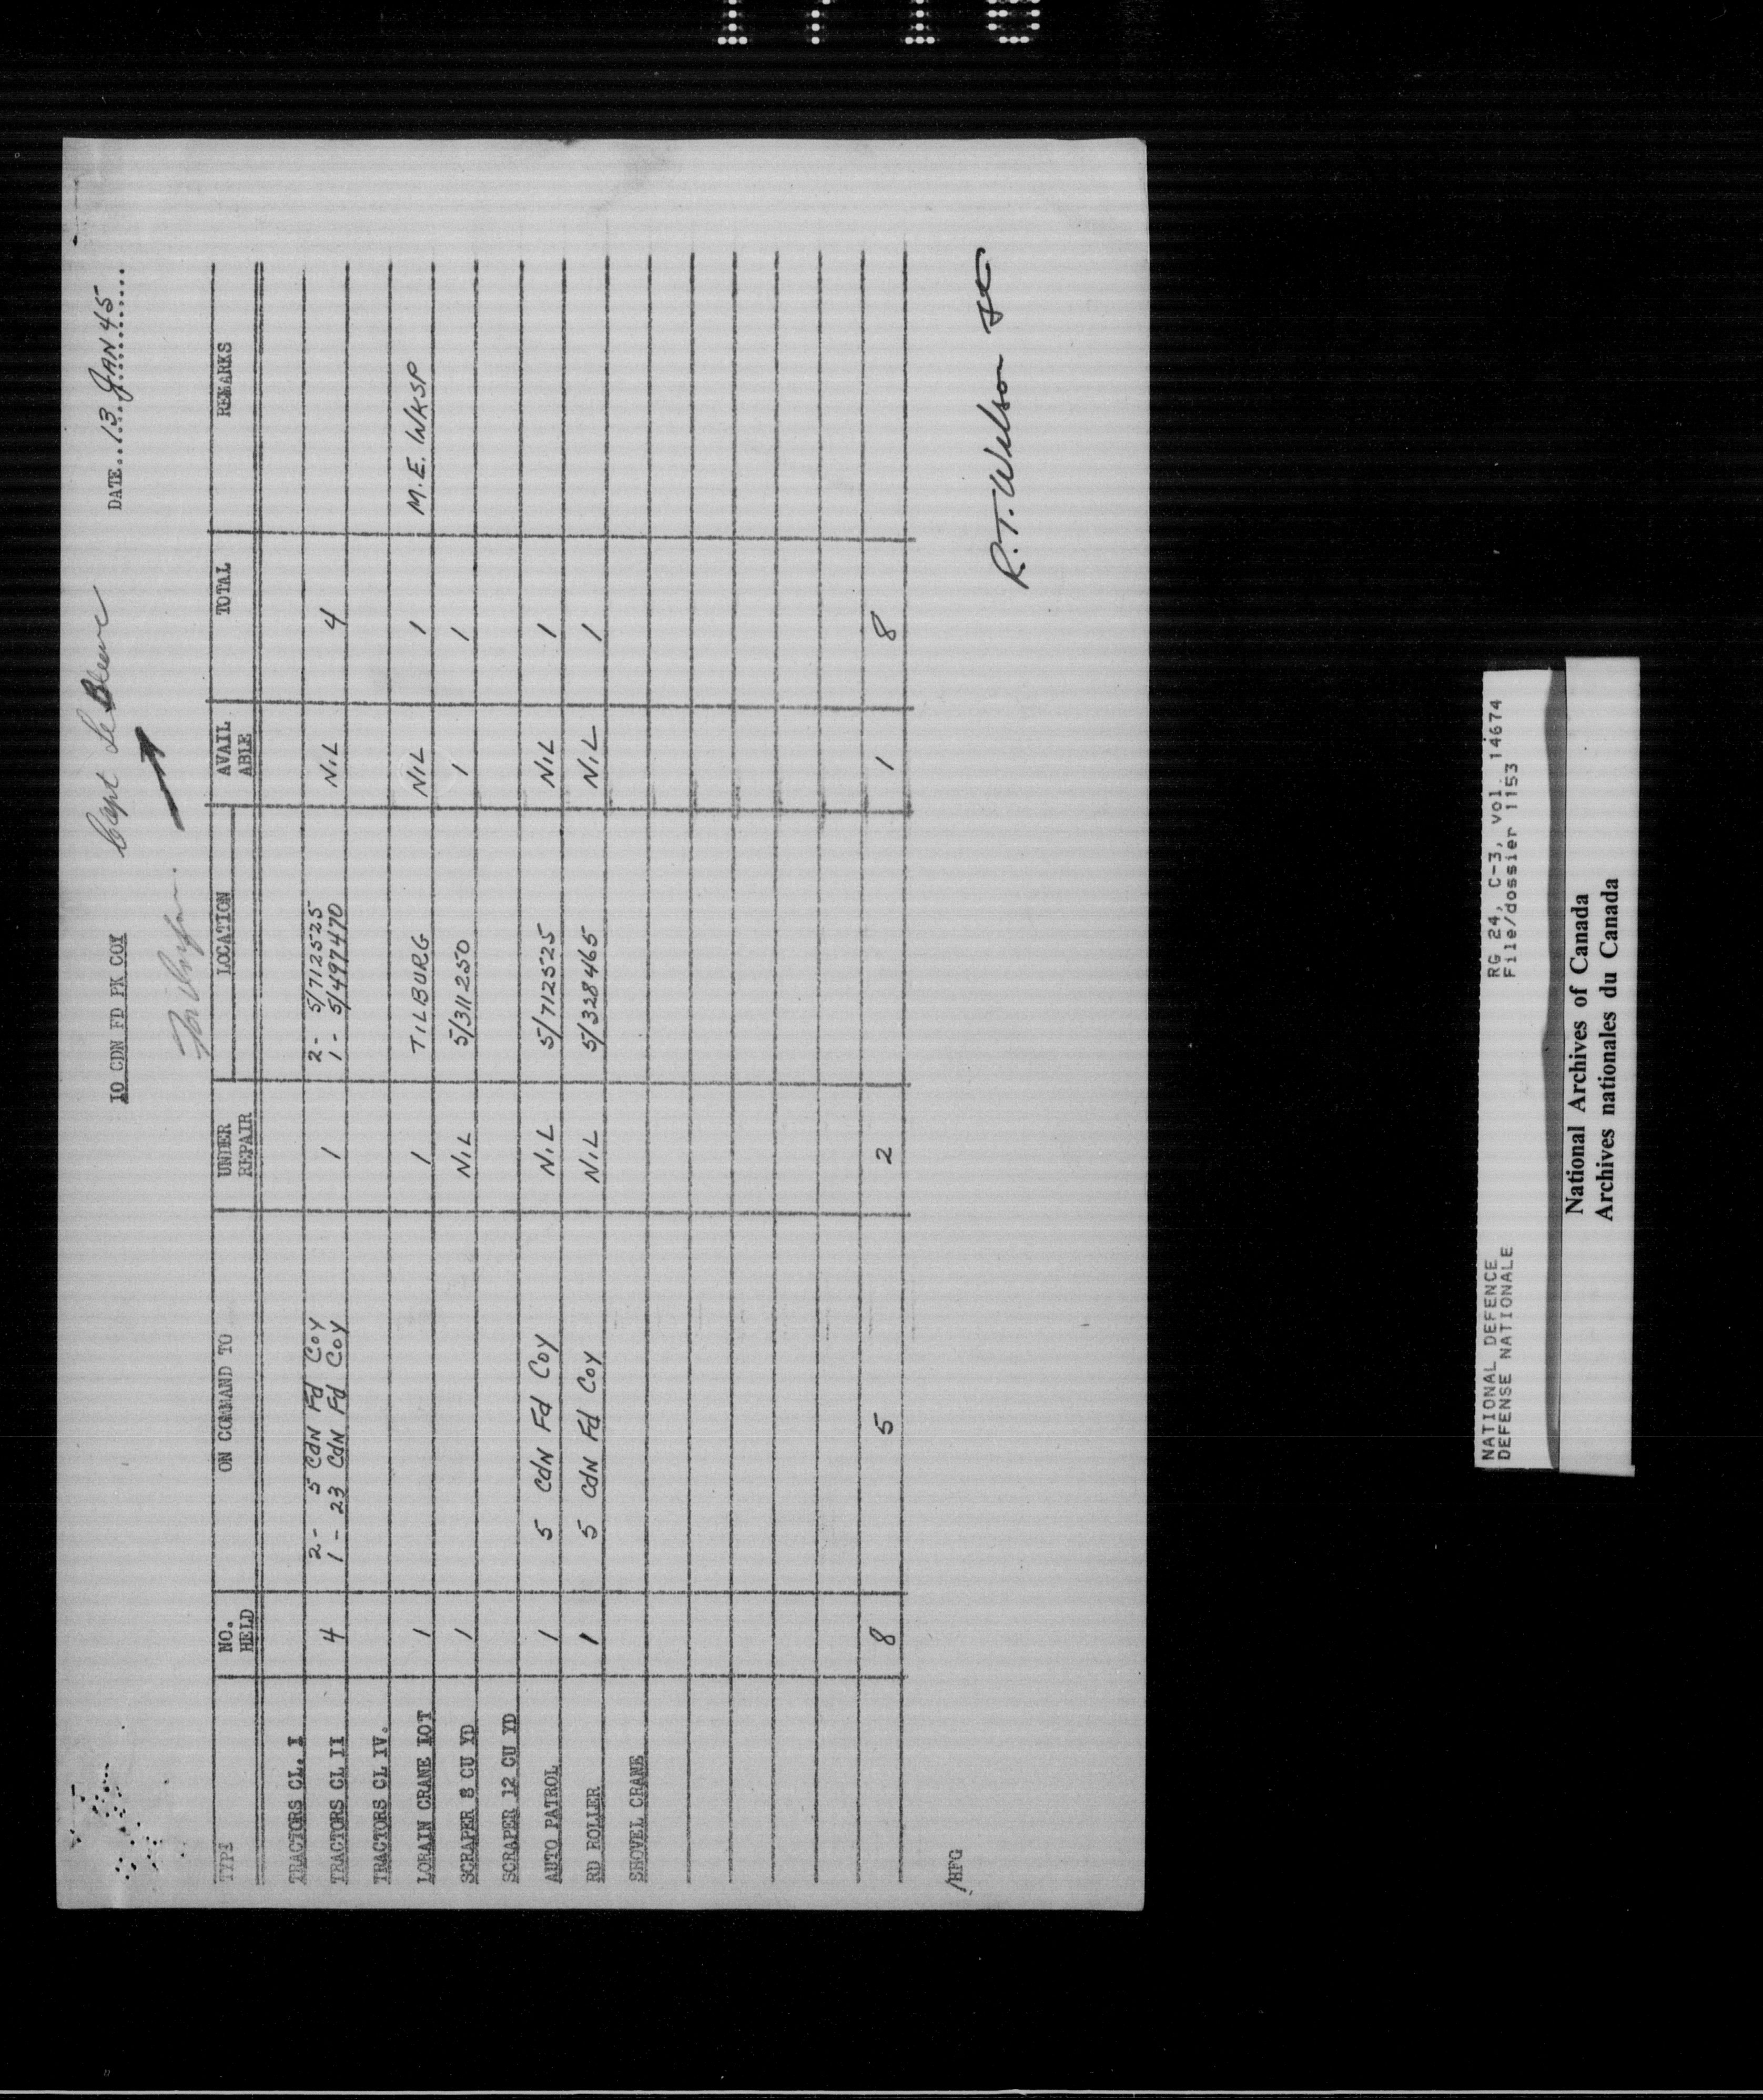 10 CDN FD PK COY Capt DATE..13 JAN 45
TYPE NO. HELD ON COMMAND TO UNDER REPAIR LOCATION AVAIL ABLE TOTAL REMARKS
TRACTORS CL. I
TRACTORS CL II 4 2 - 5 Cdn Fd Coy 1 2 - 5/712525 NIL 4
1 - 23 Cdn Fd Coy 1 - 5/497470
TRACTORS CL IV.
LORAIN CRANE 10T 1 1 TILBURG NIL 1 M.E. WKSP
SCRAPER 8 CU YD 1 NIL 5/311250 1 1
SCRAPER 12 CU YD
AUTO PATROL 1 5 Cdn Fd Coy NIL 5/712525 NIL 1
RD ROLLER 1 5 Cdn Fd Coy NIL 5/328465 NIL 1
SHOVEL CRANE
8 5 2 1 8
/HFG
R.T. Wilson
NATIONAL DEFENCE RG 24, C-3, vol. 14674
DEFENSE NATIONALE File/dossier 1153
National Archives of Canada
Archives nationales du Canada